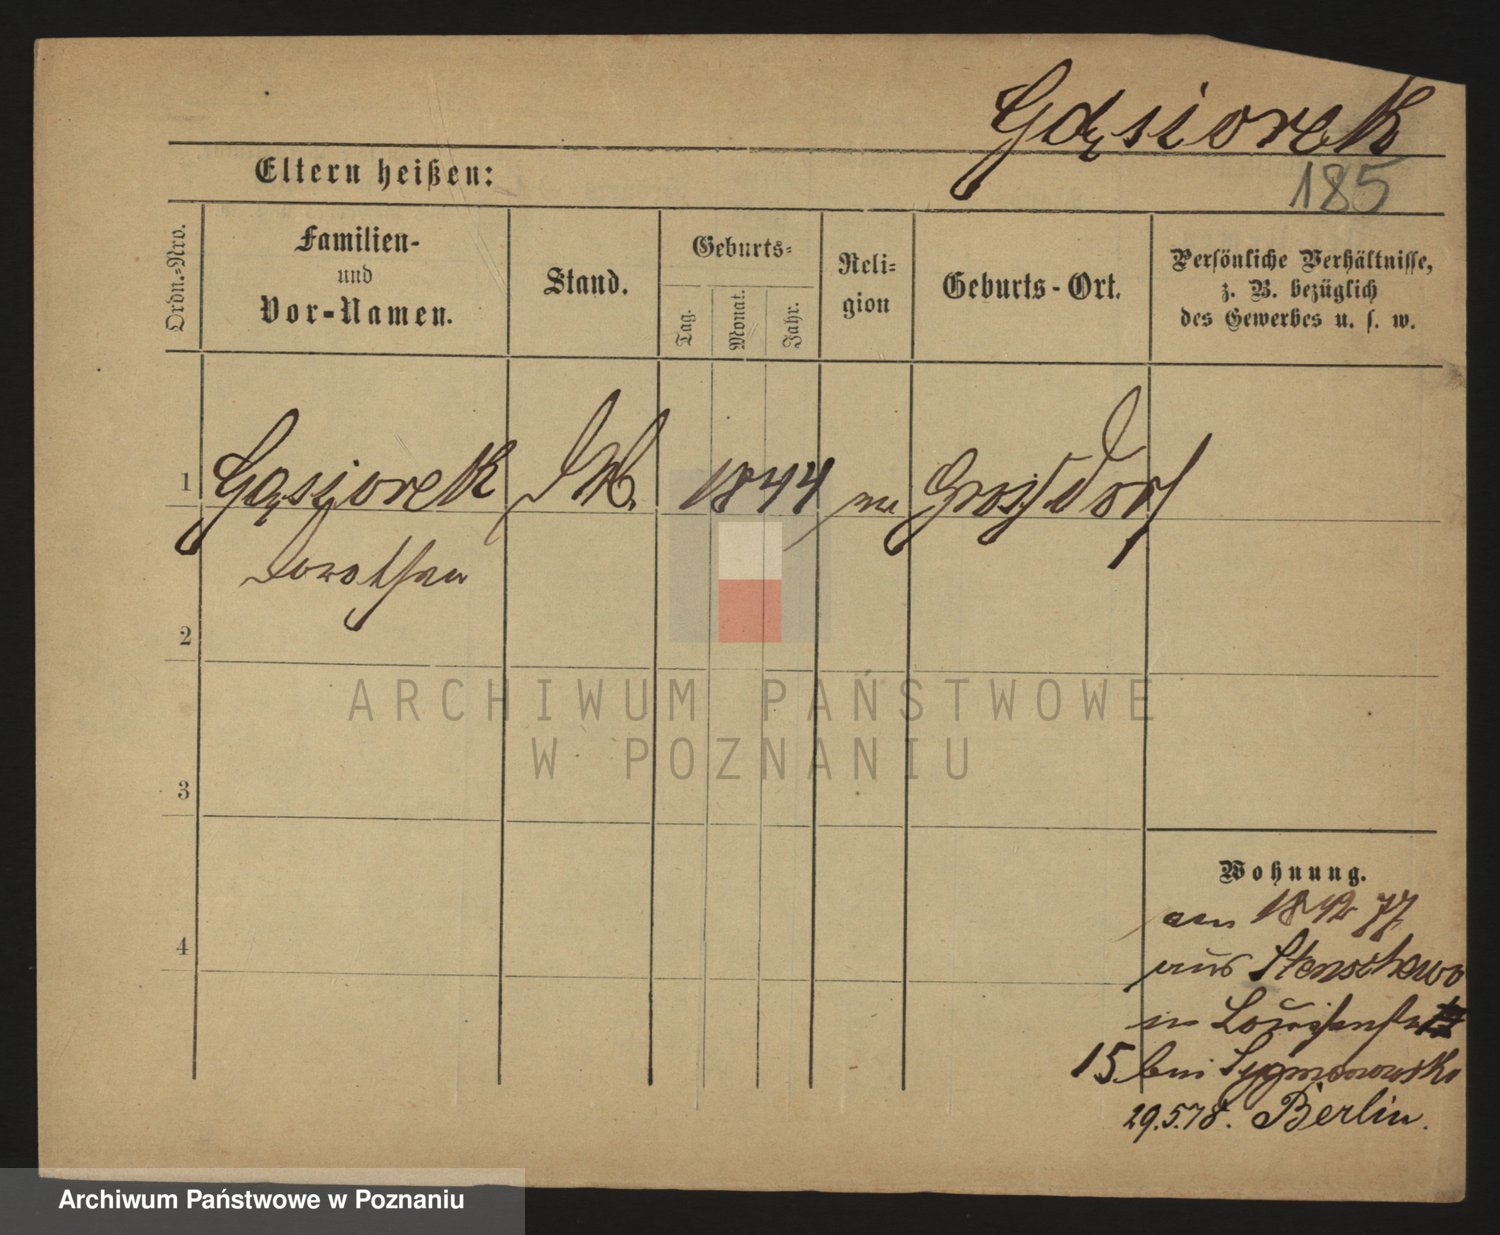 Gąsiorek
185
Eltern heißen:
Ordn.-Nro.
Familien-
und
Vor-Namen.
Stand.
Geburts-
Tag.
Monat.
Jahr.
Reli-
gion
Geburts-Ort.
Persönliche Verhältnisse,
z. B. bezüglich
des Gewerbes u. s. w.
1 Gąsiorek 1844 Grossdorf
Dorothea
2
3
4
ARCHIWUM PAŃSTWOWE
W POZNANIU
Wohnung.
am 77
aus Stenschewo
in
15 bei
29.5.78. Berlin.
Archiwum Państwowe w Poznaniu